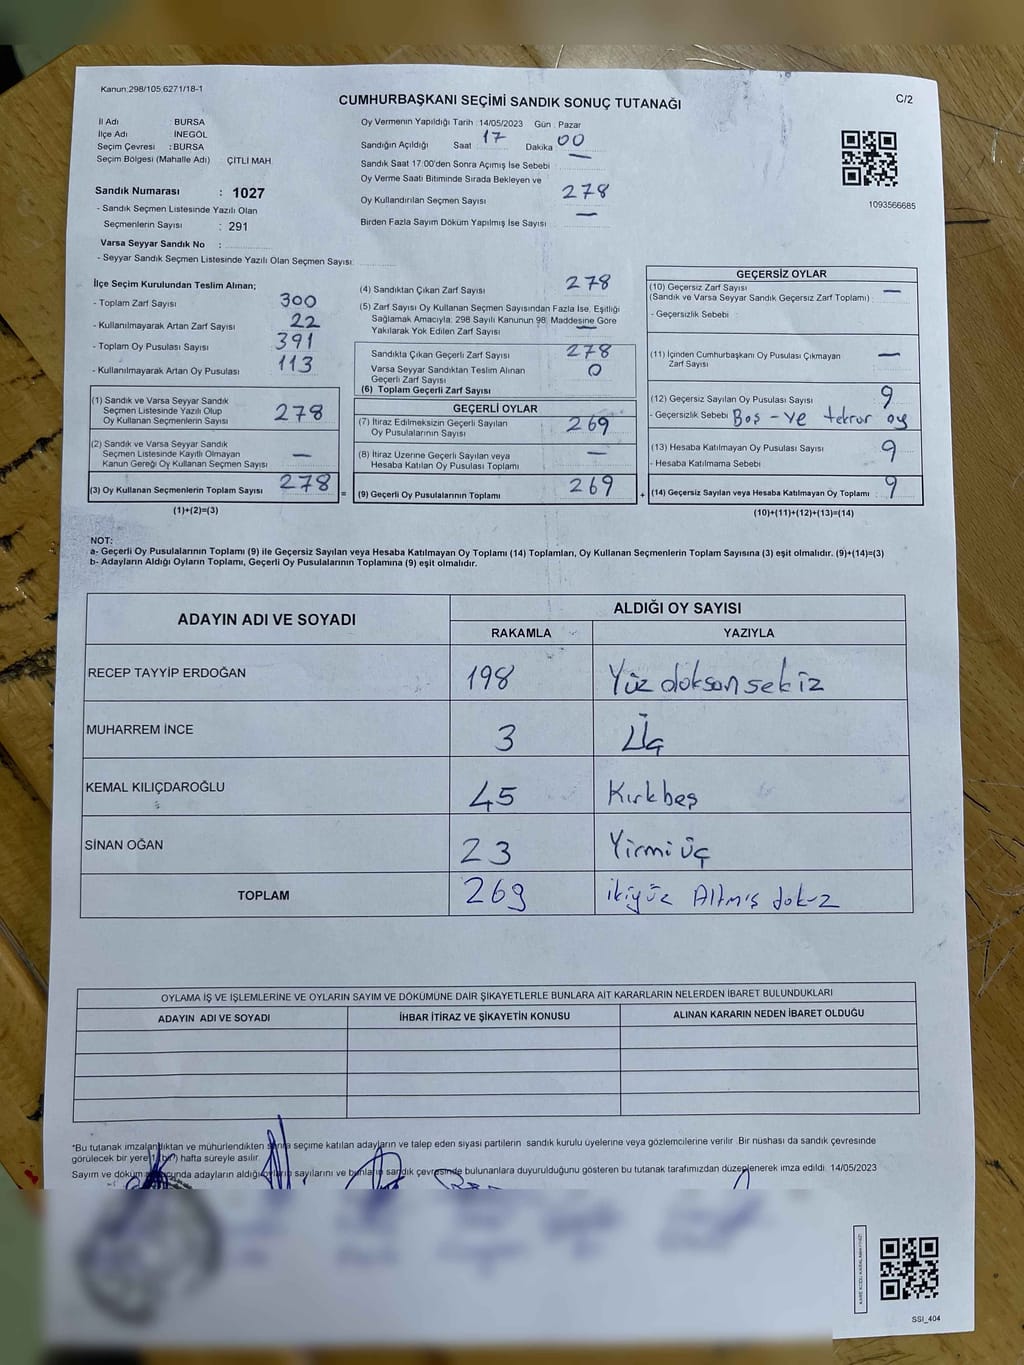 Kanun:298/105,6271/18-1
CUMHURBAŞKANI SEÇİMİ SANDIK SONUÇ TUTANAĞI
C/2
İl Adı : BURSA
İlçe Adı İNEGÖL
Seçim Çevresi : BURSA
Seçim Bölgesi (Mahalle Adı) ÇİTLİ MAH.
Sandık Numarası : 1027
- Sandık Seçmen Listesinde Yazılı Olan
Seçmenlerin Sayısı : 291
Varsa Seyyar Sandık No :
- Seyyar Sandık Seçmen Listesinde Yazılı Olan Seçmen Sayısı:
Oy Vermenin Yapıldığı Tarih : 14/05/2023 Gün : Pazar
Sandığın Açıldığı Saat 17 Dakika 00
Sandık Saat 17:00'den Sonra Açımış İse Sebebi —
Oy Verme Saati Bitiminde Sırada Bekleyen ve
Oy Kullandırılan Seçmen Sayısı 278
Birden Fazla Sayım Döküm Yapılmış İse Sayısı —
1093566685
İlçe Seçim Kurulundan Teslim Alınan;
- Toplam Zarf Sayısı 300
- Kullanılmayarak Artan Zarf Sayısı 22
- Toplam Oy Pusulası Sayısı 391
- Kullanılmayarak Artan Oy Pusulası 113
(1) Sandık ve Varsa Seyyar Sandık
Seçmen Listesinde Yazılı Olup
Oy Kullanan Seçmenlerin Sayısı 278
(2) Sandık ve Varsa Seyyar Sandık
Seçmen Listesinde Kayıtlı Olmayan
Kanun Gereği Oy Kullanan Seçmen Sayısı —
(3) Oy Kullanan Seçmenlerin Toplam Sayısı 278 =
(1)+(2)=(3)
(4) Sandıktan Çıkan Zarf Sayısı 278
(5) Zarf Sayısı Oy Kullanan Seçmen Sayısından Fazla İse, Eşitliği
Sağlamak Amacıyla, 298 Sayılı Kanunun 98. Maddesine Göre
Yakılarak Yok Edilen Zarf Sayısı —
Sandıkta Çıkan Geçerli Zarf Sayısı 278
Varsa Seyyar Sandıktan Teslim Alınan
Geçerli Zarf Sayısı 0
(6) Toplam Geçerli Zarf Sayısı
GEÇERLİ OYLAR
(7) İtiraz Edilmeksizin Geçerli Sayılan
Oy Pusulalarının Sayısı 269
(8) İtiraz Üzerine Geçerli Sayılan veya
Hesaba Katılan Oy Pusulası Toplamı —
(9) Geçerli Oy Pusulalarının Toplamı 269 +
GEÇERSİZ OYLAR
(10) Geçersiz Zarf Sayısı —
(Sandık ve Varsa Seyyar Sandık Geçersiz Zarf Toplamı) :
- Geçersizlik Sebebi :
(11) İçinden Cumhurbaşkanı Oy Pusulası Çıkmayan
Zarf Sayısı —
(12) Geçersiz Sayılan Oy Pusulası Sayısı 9
- Geçersizlik Sebebi Boş - ve tekrar oy
(13) Hesaba Katılmayan Oy Pusulası Sayısı 9
- Hesaba Katılmama Sebebi
(14) Geçersiz Sayılan veya Hesaba Katılmayan Oy Toplamı : 9
(10)+(11)+(12)+(13)=(14)
NOT:
a- Geçerli Oy Pusulalarının Toplamı (9) ile Geçersiz Sayılan veya Hesaba Katılmayan Oy Toplamı (14) Toplamları, Oy Kullanan Seçmenlerin Toplam Sayısına (3) eşit olmalıdır. (9)+(14)=(3)
b- Adayların Aldığı Oyların Toplamı, Geçerli Oy Pusulalarının Toplamına (9) eşit olmalıdır.
ADAYIN ADI VE SOYADI
ALDIĞI OY SAYISI
RAKAMLA YAZIYLA
RECEP TAYYİP ERDOĞAN 198 Yüz doksan sekiz
MUHARREM İNCE 3 Üç
KEMAL KILIÇDAROĞLU 45 Kırkbeş
SİNAN OĞAN 23 Yirmi üç
TOPLAM 269 ikiyüz Altmış dokuz
OYLAMA İŞ VE İŞLEMLERİNE VE OYLARIN SAYIM VE DÖKÜMÜNE DAİR ŞİKAYETLERLE BUNLARA AİT KARARLARIN NELERDEN İBARET BULUNDUKLARI
ADAYIN ADI VE SOYADI İHBAR İTİRAZ VE ŞİKAYETİN KONUSU ALINAN KARARIN NEDEN İBARET OLDUĞU
*Bu tutanak imzalandıktan ve mühürlendikten sonra seçime katılan adayların ve talep eden siyasi partilerin sandık kurulu üyelerine veya gözlemcilerine verilir. Bir nüshası da sandık çevresinde
görülecek bir yere 1(bir) hafta süreyle asılır.
Sayım ve döküm sonucunda adayların aldığı oyların sayılarını ve bunların sandık çevresinde bulunanlara duyurulduğunu gösteren bu tutanak tarafımızdan düzenlenerek imza edildi. 14/05/2023
SSİ_404